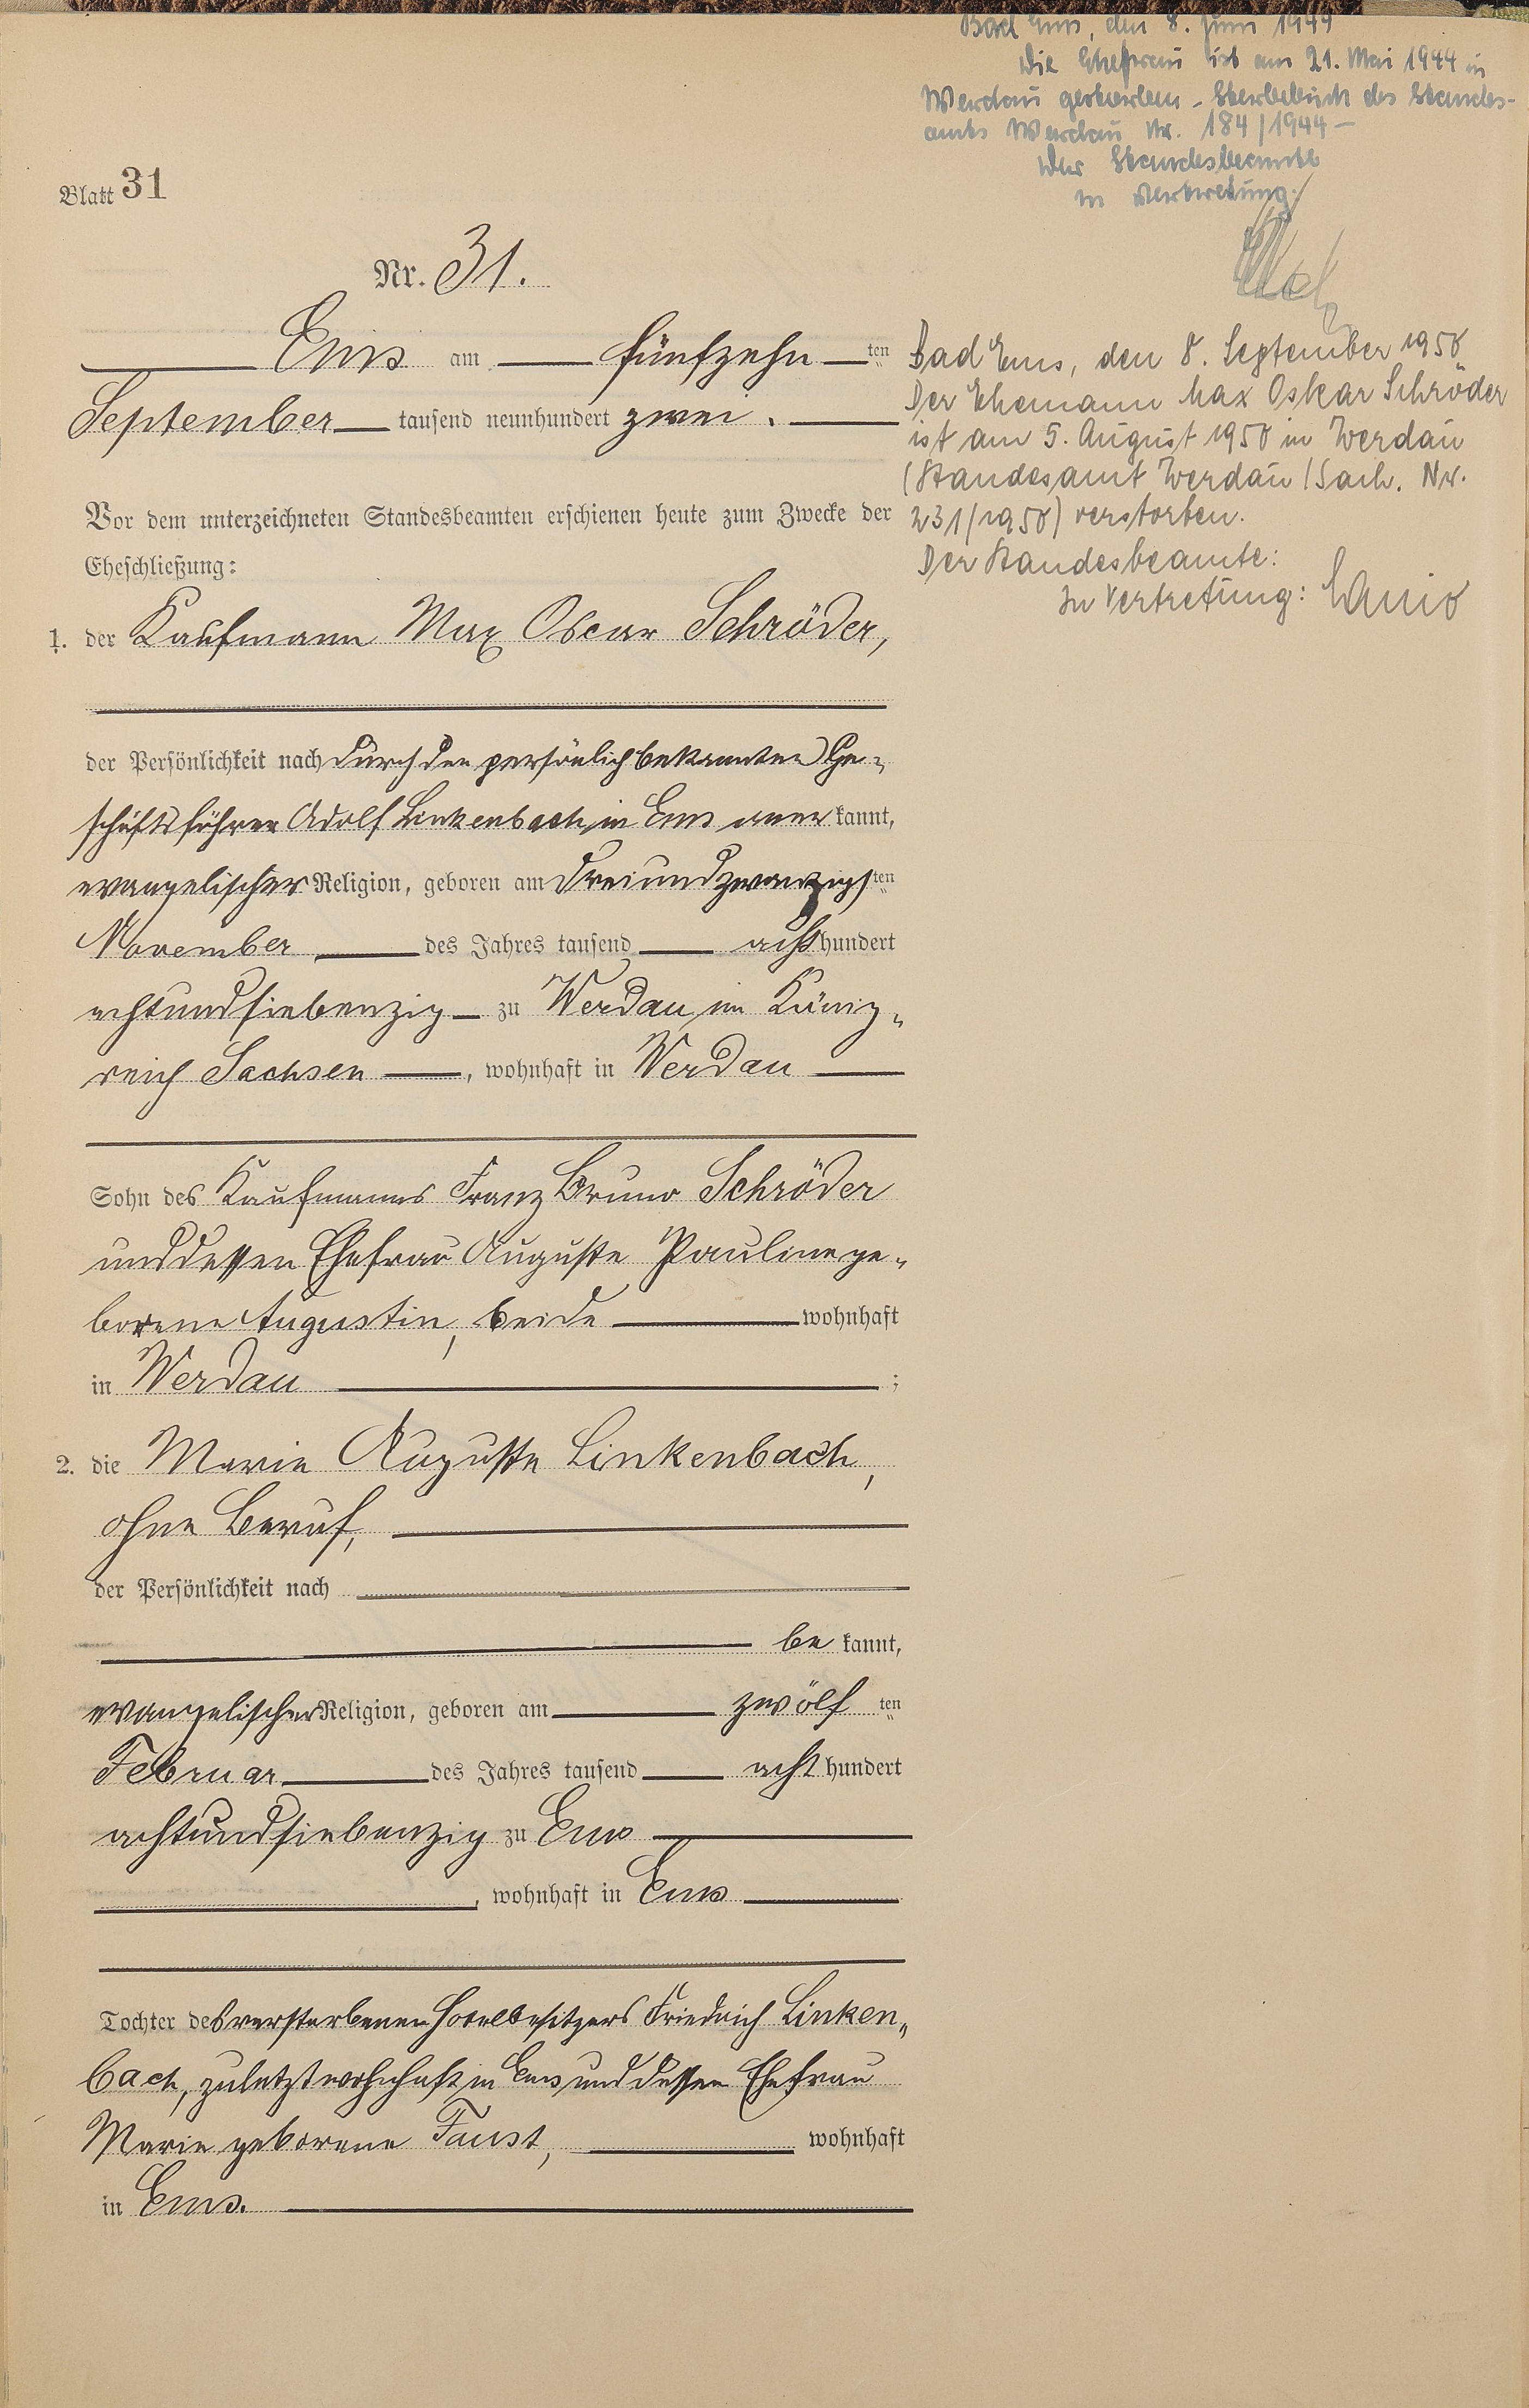 Bad Ems, den 8. Juni 1944
Die Ehefrau ist am 21. Mai 1944 in
Werdau gestorben - Sterbebuch des Standes-
amts Werdau Nr. 184/1944 -
Der Standesbeamte
in Vertretung:
Blatt 31
Nr. 31.
Ems am fünfzehn ten
September tausend neunhundert zwei.
Vor dem unterzeichneten Standesbeamten erschienen heute zum Zwecke der
Eheschließung:
1. der Kaufmann Max Oscar Schröder,
der Persönlichkeit nach durch den persönlich bekannten Ge-
schäftsführer Adolf Linkenbach in Ems aner kannt,
evangelischer Religion, geboren am dreiundzwanzigs ten
November des Jahres tausend acht hundert
achtundsiebenzig zu Werdau im König-
reich Sachsen, wohnhaft in Werdau
Sohn des Kaufmanns Franz Bruno Schröder
und dessen Ehefrau Auguste Pauline ge-
borene Augustin, beide wohnhaft
in Werdau ;
2. die Marie Auguste Linkenbach,
ohne Beruf,
der Persönlichkeit nach
be kannt,
evangelischer Religion, geboren am zwölf ten
Februar des Jahres tausend acht hundert
achtundsiebenzig zu Ems
, wohnhaft in Ems
Tochter des verstorbenen Hotelbesitzers Friedrich Linken-
bach, zuletzt wohnhaft in Ems und dessen Ehefrau
Marie geborene Faust, wohnhaft
in Ems.
Bad Ems, den 8. September 1950
Der Ehemann Max Oskar Schröder
ist am 5. August 1950 in Werdau
(Standesamt Werdau/Sach. Nr.
231/1950) verstorben.
Der Standesbeamte:
In Vertretung: